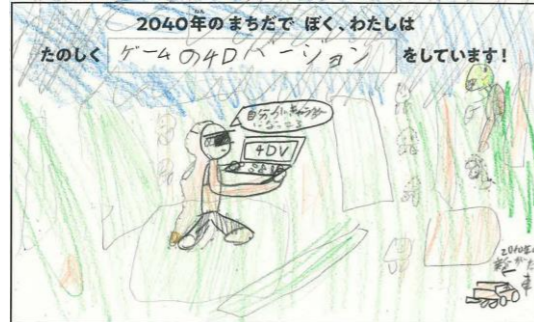 2040年の まちだで ぼく、わたしは
たのしく ゲームの4Dバージョン をしています！
自分が、キャラクター
になってる
4DV
2040年の
新がた
車